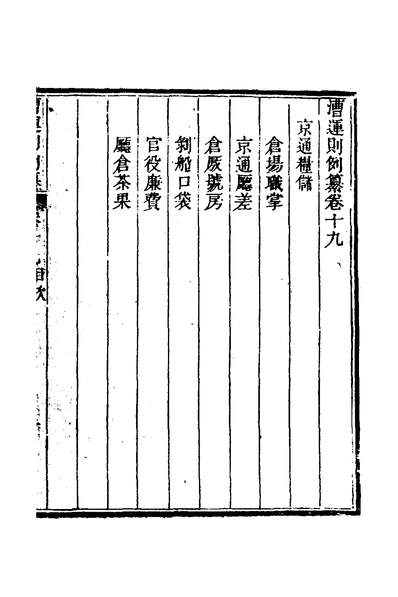 漕運則例纂卷十九
京通糧儲
倉場職掌
京通廳差
倉厫號房
剝船口袋
官役廉費
廳倉茶果